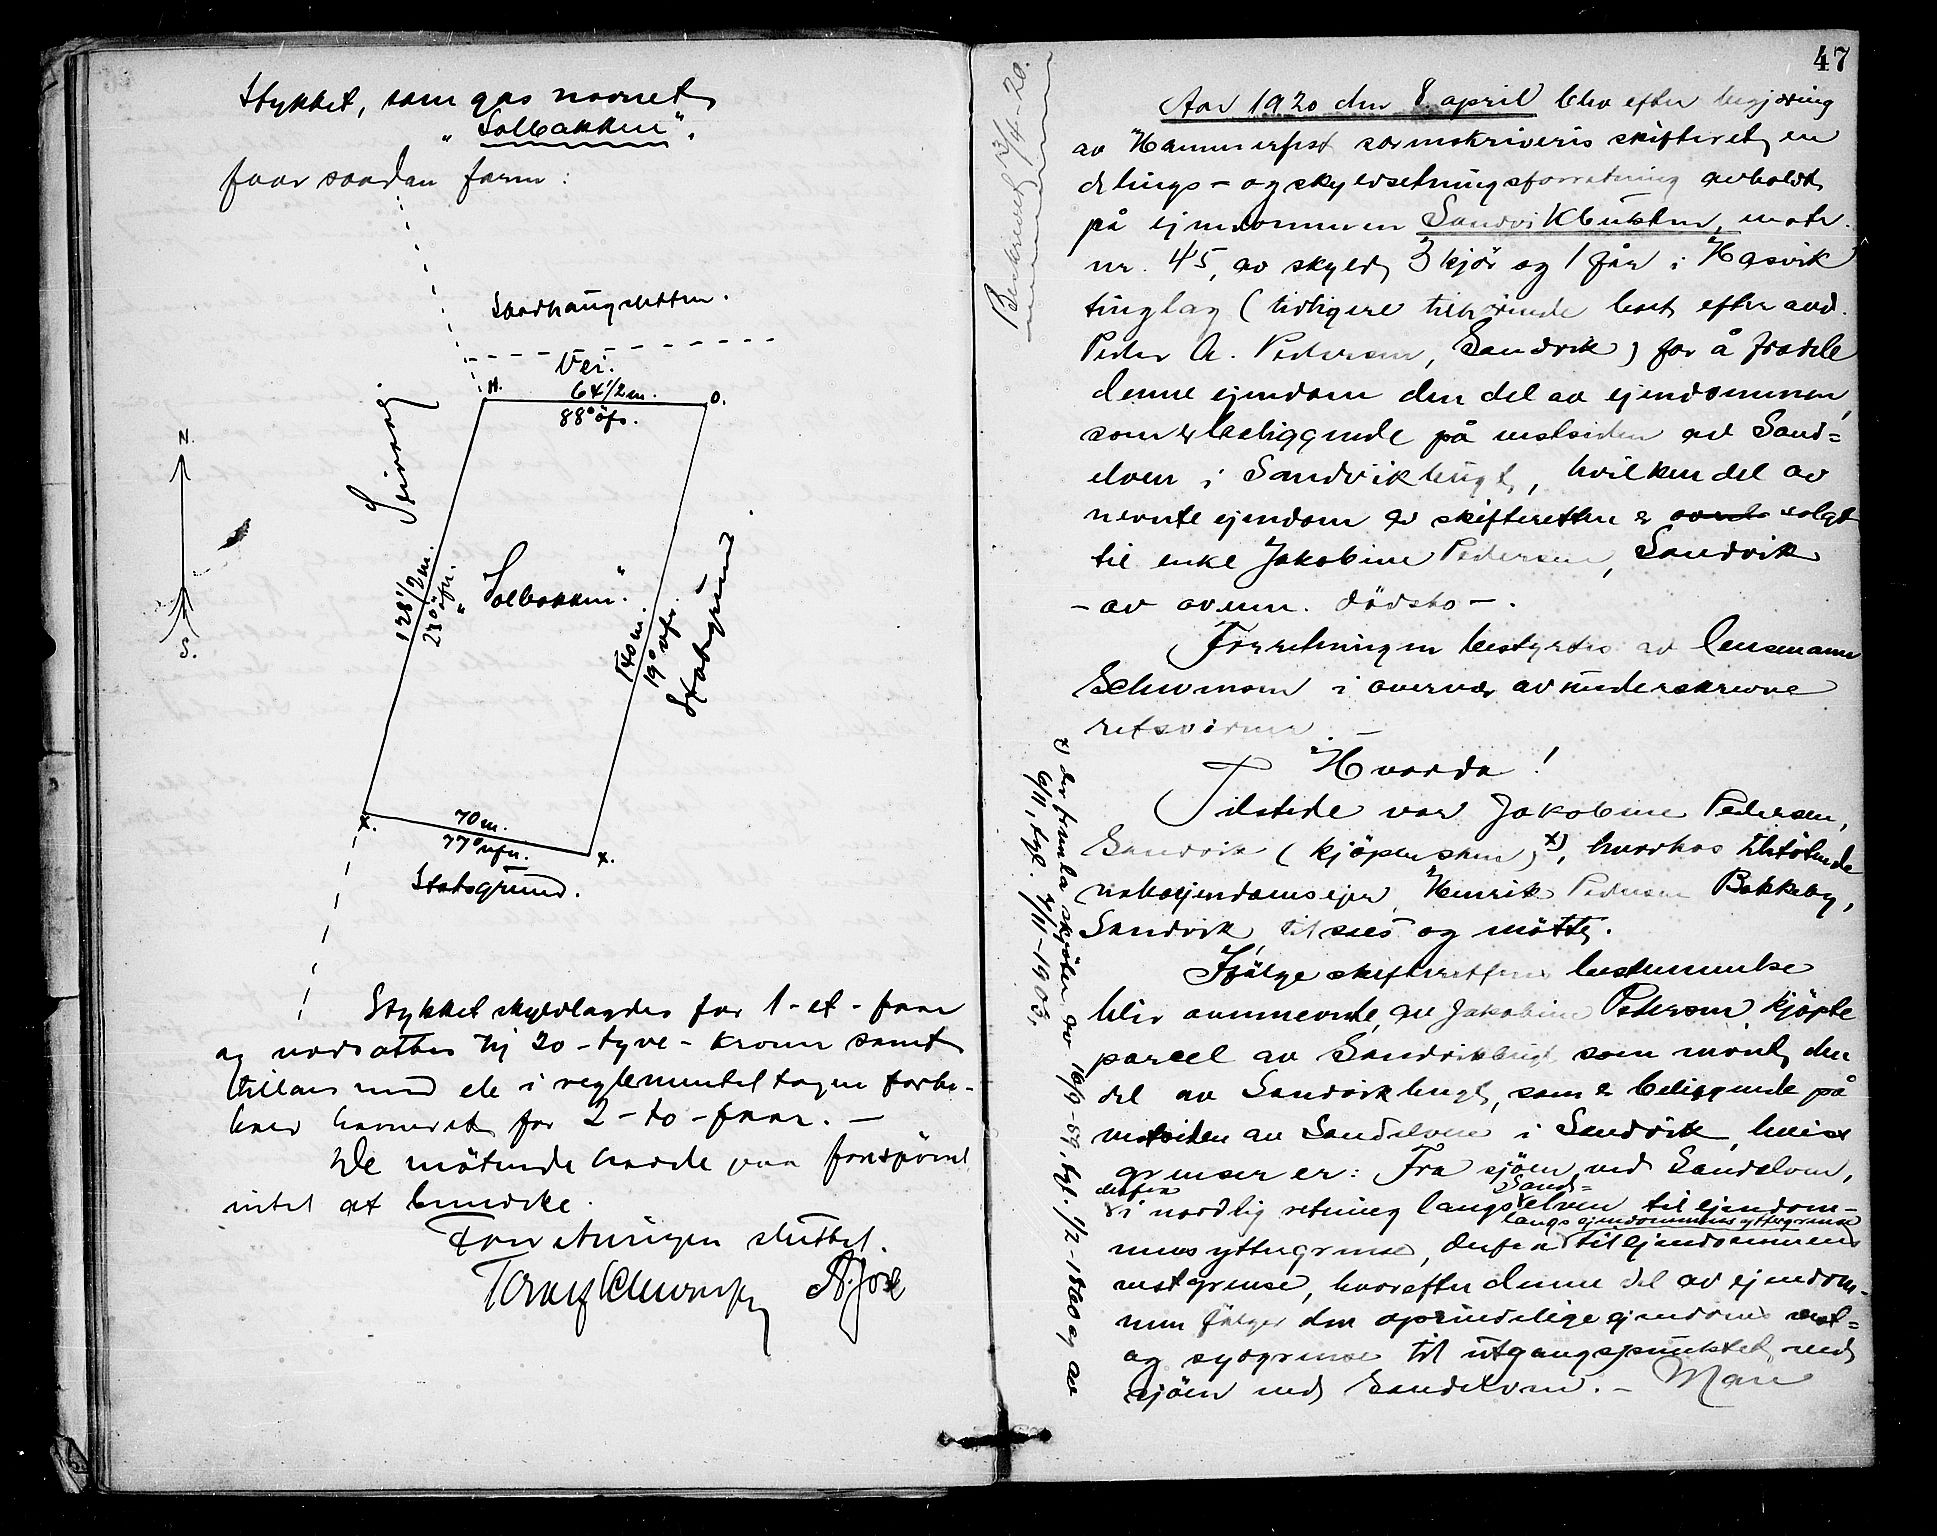 Stykket, som gas navnet
"Solbakken",
faar saadan form:
Skarhaugsletten.
Vei.
N. 64 1/2 m. O.
88° öfs.
Steinvaag
N.
S.
128 1/2 m.
23° öfn.
"Solbakken."
140 m.
19° vfs.
Statsgrund
x. 70 m.
77° vfn. x.
Statsgrund.
Stykket skyldlagdes for 1 - et - faar
og verdsattes til 20 - tyve - kroner samt
tillaes med de i reglementet tagne forbe-
hold havneret for 2 - to - faar. -
De mötende havde paa forespörsel
intet at bemerke.
Forretningen sluttet.
47
Beskrevet 13/4-20.
Aar 1920 den 8 april blev efter begjæring
av Hammerfest sorenskriveris skifteret en
delings- og skyldsetningsforretning avholdt
på ejendommen Sandvikbugten, matr.
nr. 45, av skyld 3 kjör og 1 får i Hasvik
tinglag (tidligere tilhørende boet efter avd.
Peder A. Pedersen, Sandvik) for å fradele
denne ejendom den del av ejendommen,
som er beliggende på vestsiden av Sand=
elven i Sandvikbugt, hvilken del av
nevnte ejendom av skifteretten er solgt
til enke Jakobine Pedersen, Sandvik
- av ovenn. dödsbo - .
Forretningen bestyrtes av lensmann
i overvær av underskrevne
retsvidner. -
Hvorda!
Tilstede var Jakobine Pedersen,
Sandvik (kjöpersken) x), hvorhos tilstötende
naboejendomsejer Henrik Pedersen Bakkeby,
Sandvik, tilsaes og mötte.
Ifölge skifterettens bestemmelse
blir ovennevnte av Jakobine Pedersen kjöpte
parcel av Sandvikbugt, som nevnt den
del av Sandvikbugt, som er beliggende på
vestsiden av Sandelven i Sandvik, hvis
grenser er: Fra sjöen ved Sandelven,
derfra i nordlig retning langs Sand=elven til ejendom-
mens yttergrense, derfra langs ejendommens yttergrense til ejendommens
vestgrense, hvorefter denne del av ejendom-
men fölger den oprindelige ejendoms vest=
og sydgrense til utgangspunktet ved
sjöen ved Sandelven. - Man
x) der fremla skjöter av 16/9-59, tgl. 1/2-1860 og av
6/11, tgl. 7/11-1903.